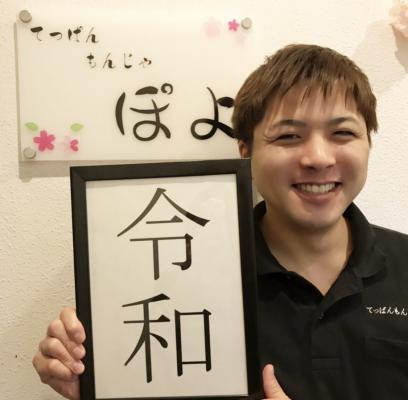 てっぱん
もんじゃ
ぽよ
令
和
てっぱんもん